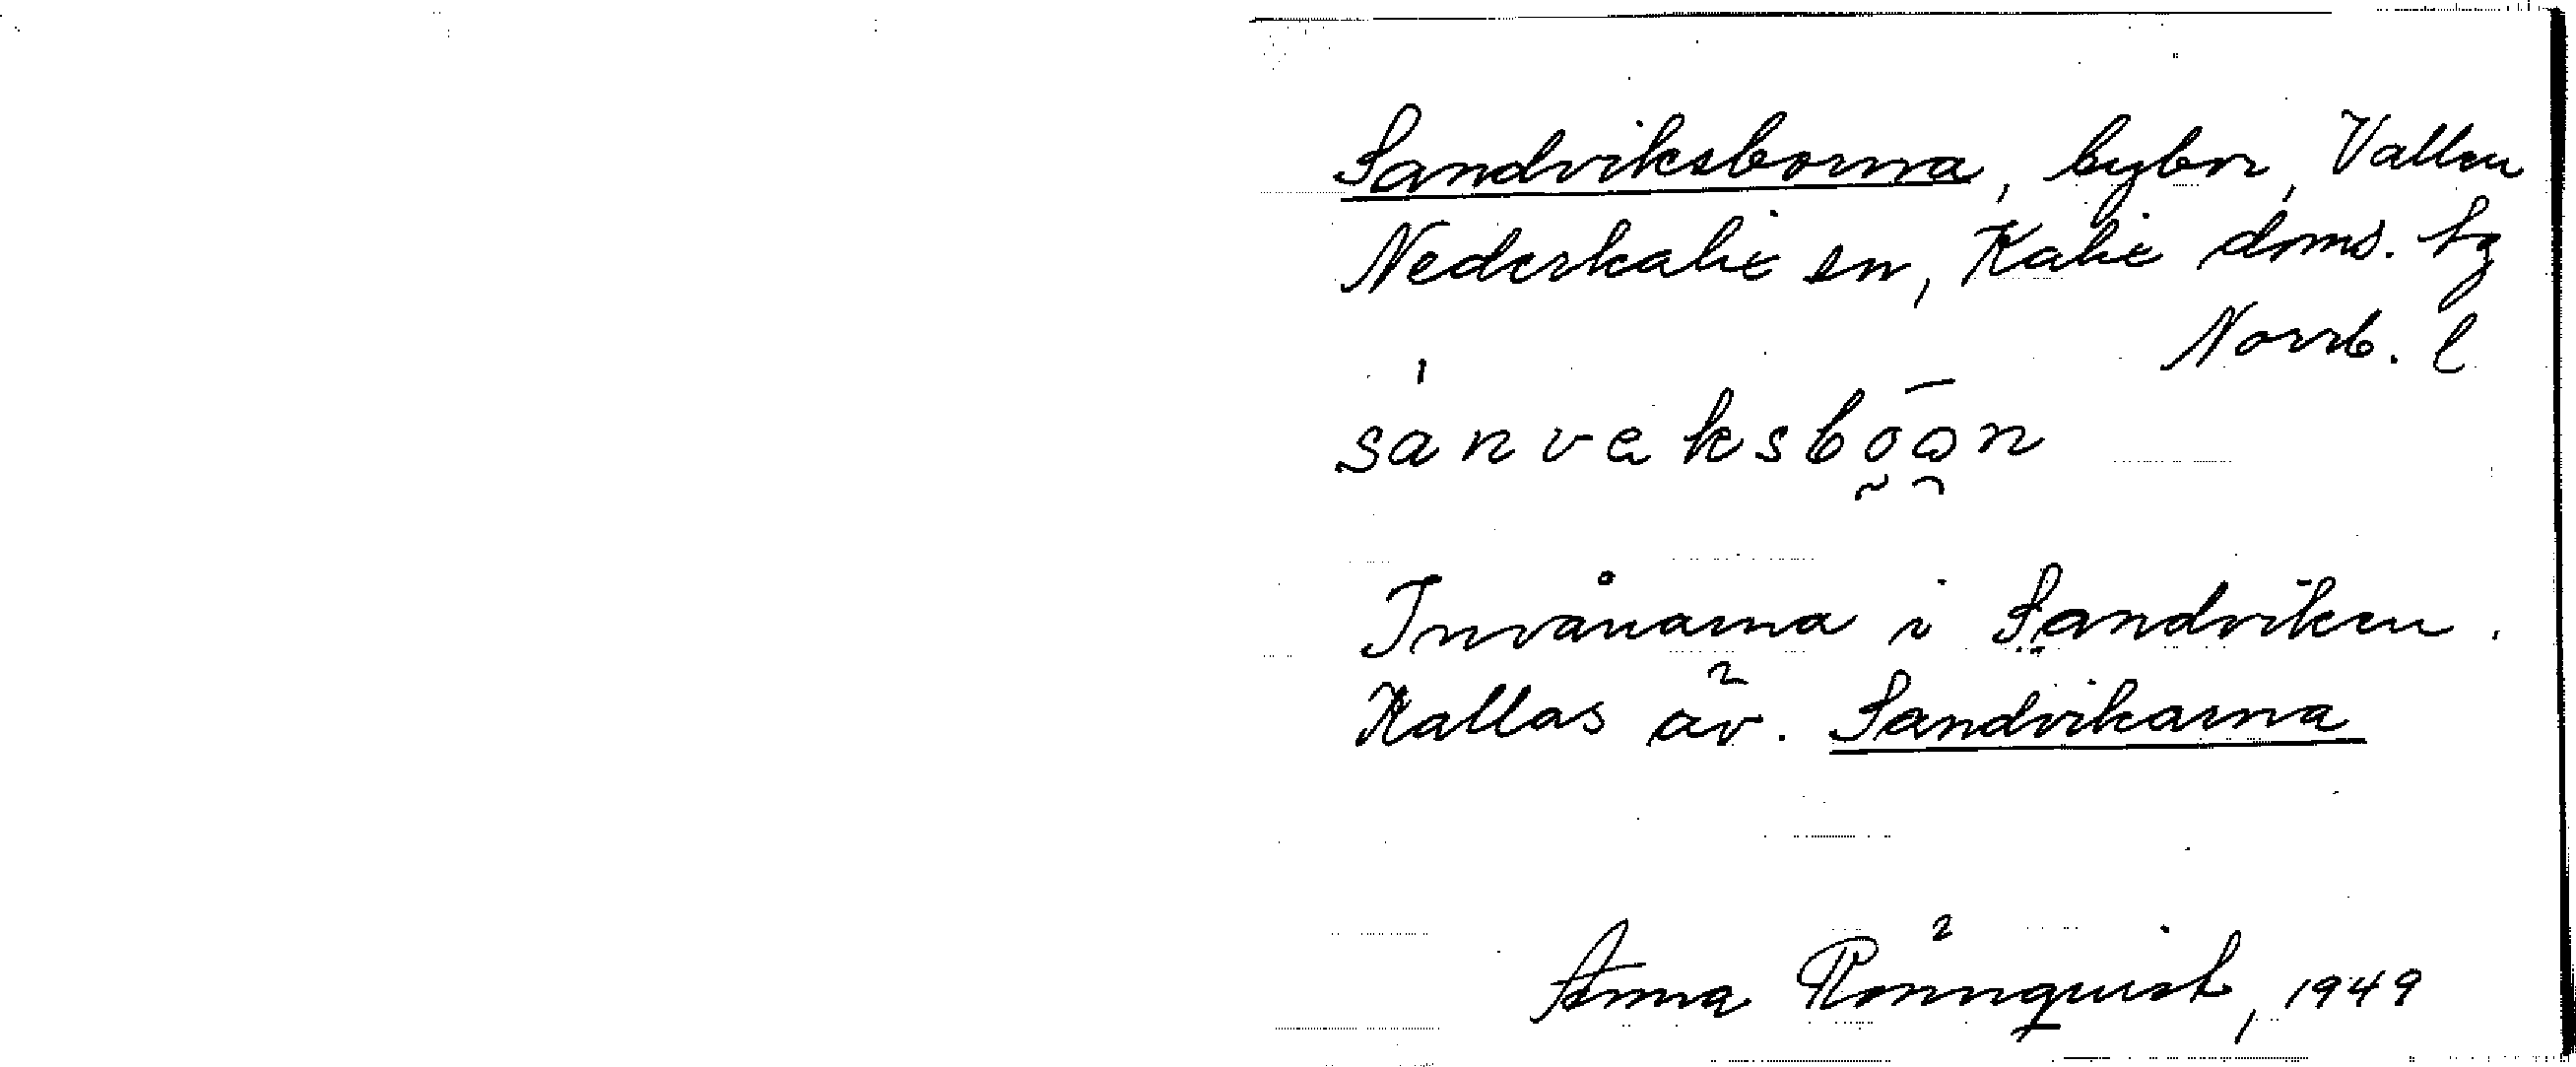 Sandviksborna, bybor, Vallen
Nederkalix sn, Kalix doms. tg
Norrb. l
sanveksboan
Invånarna i Sandviken.
Kallas äv. Sandvikarna
Anna Rönnquist, 1949